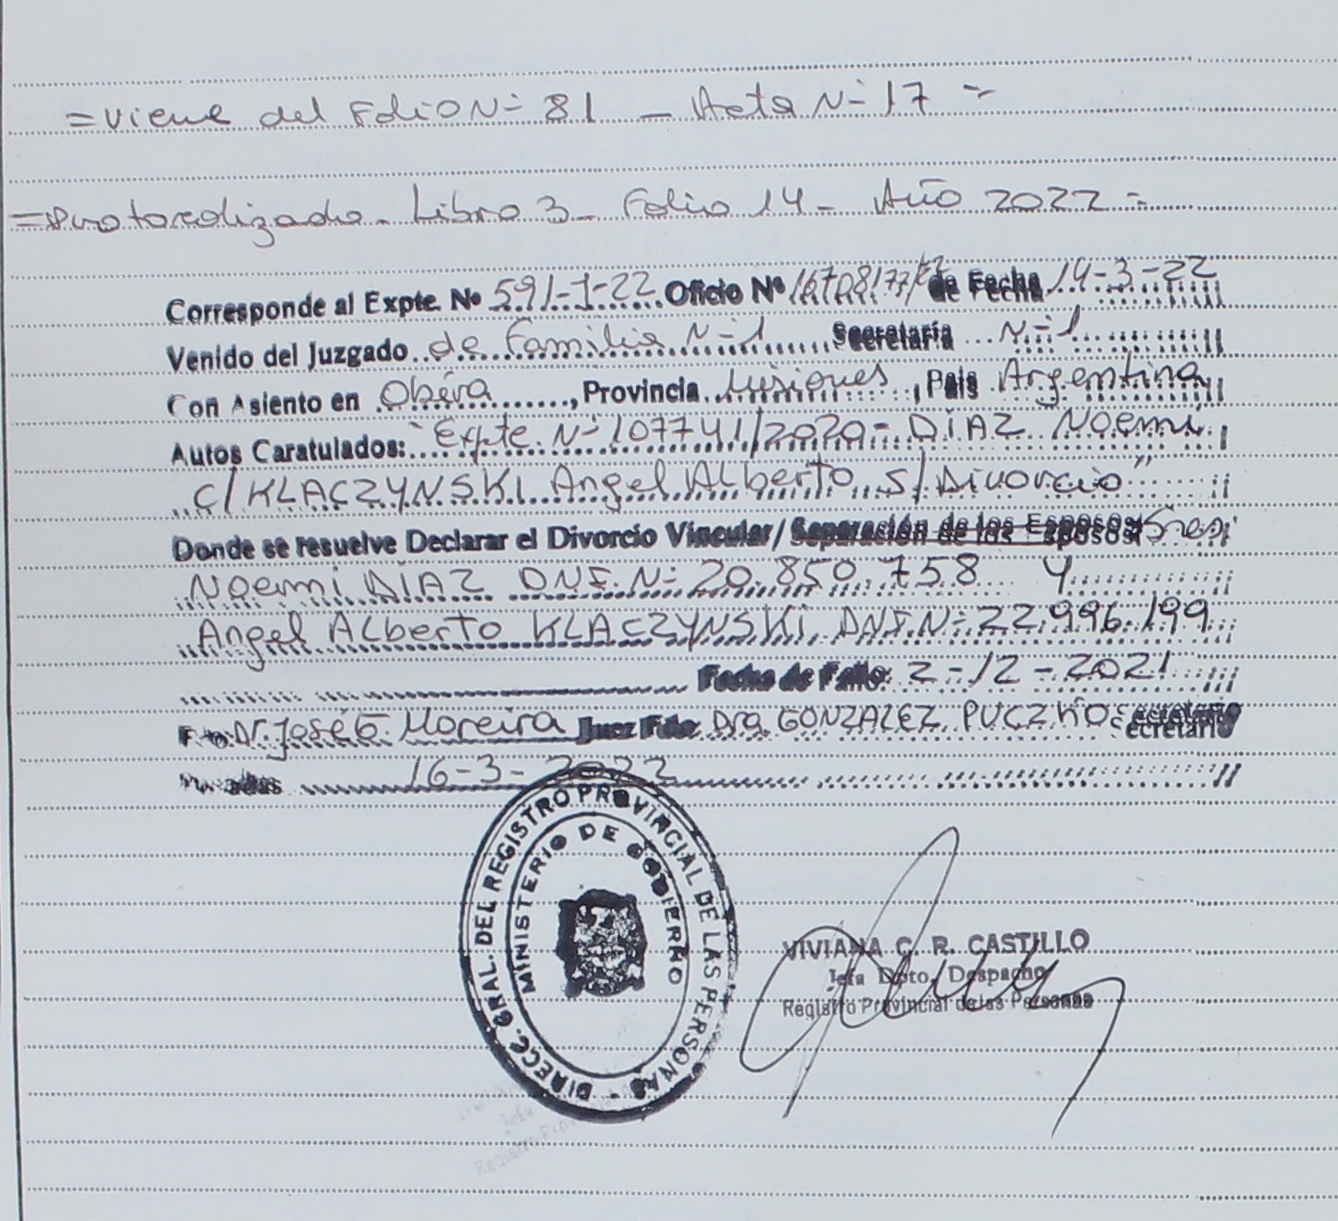 = Viene del Folio Nº 81 - Acta Nº 17 =
= Protocolizado - Libro 3 - Folio 14 - Año 2022 =
Corresponde al Expte. Nº 591-J-22 Oficio Nº 1670817/22 de Fecha 14-3-22
Venido del Juzgado de Familia Nº 1 Secretaría Nº 1
Con Asiento en Oberá, Provincia Misiones, País Argentina
Autos Caratulados: "Expte. Nº 107741/2020 - DIAZ Noemí
c/ KLACZYNSKI Angel Alberto s/ Divorcio"
Donde se resuelve Declarar el Divorcio Vincular/ Separación de los Esposos: Sres.
Noemí DIAZ DNI. Nº 20.850.758 Y
Angel Alberto KLACZYNSKI DNI. Nº 22.996.199
Fecha de Fallo: 2-12-2021
Fdo Dr. José G. Moreira Juez Fdo Dra. GONZALEZ PUCZKO Secretario
16-3-2022
DIRECC. GRAL. DEL REGISTRO PROVINCIAL DE LAS PERSONAS -
MINISTERIO DE GOBIERNO
VIVIANA C. R. CASTILLO
Jefa Dpto. Despacho
Registro Provincial de las Personas